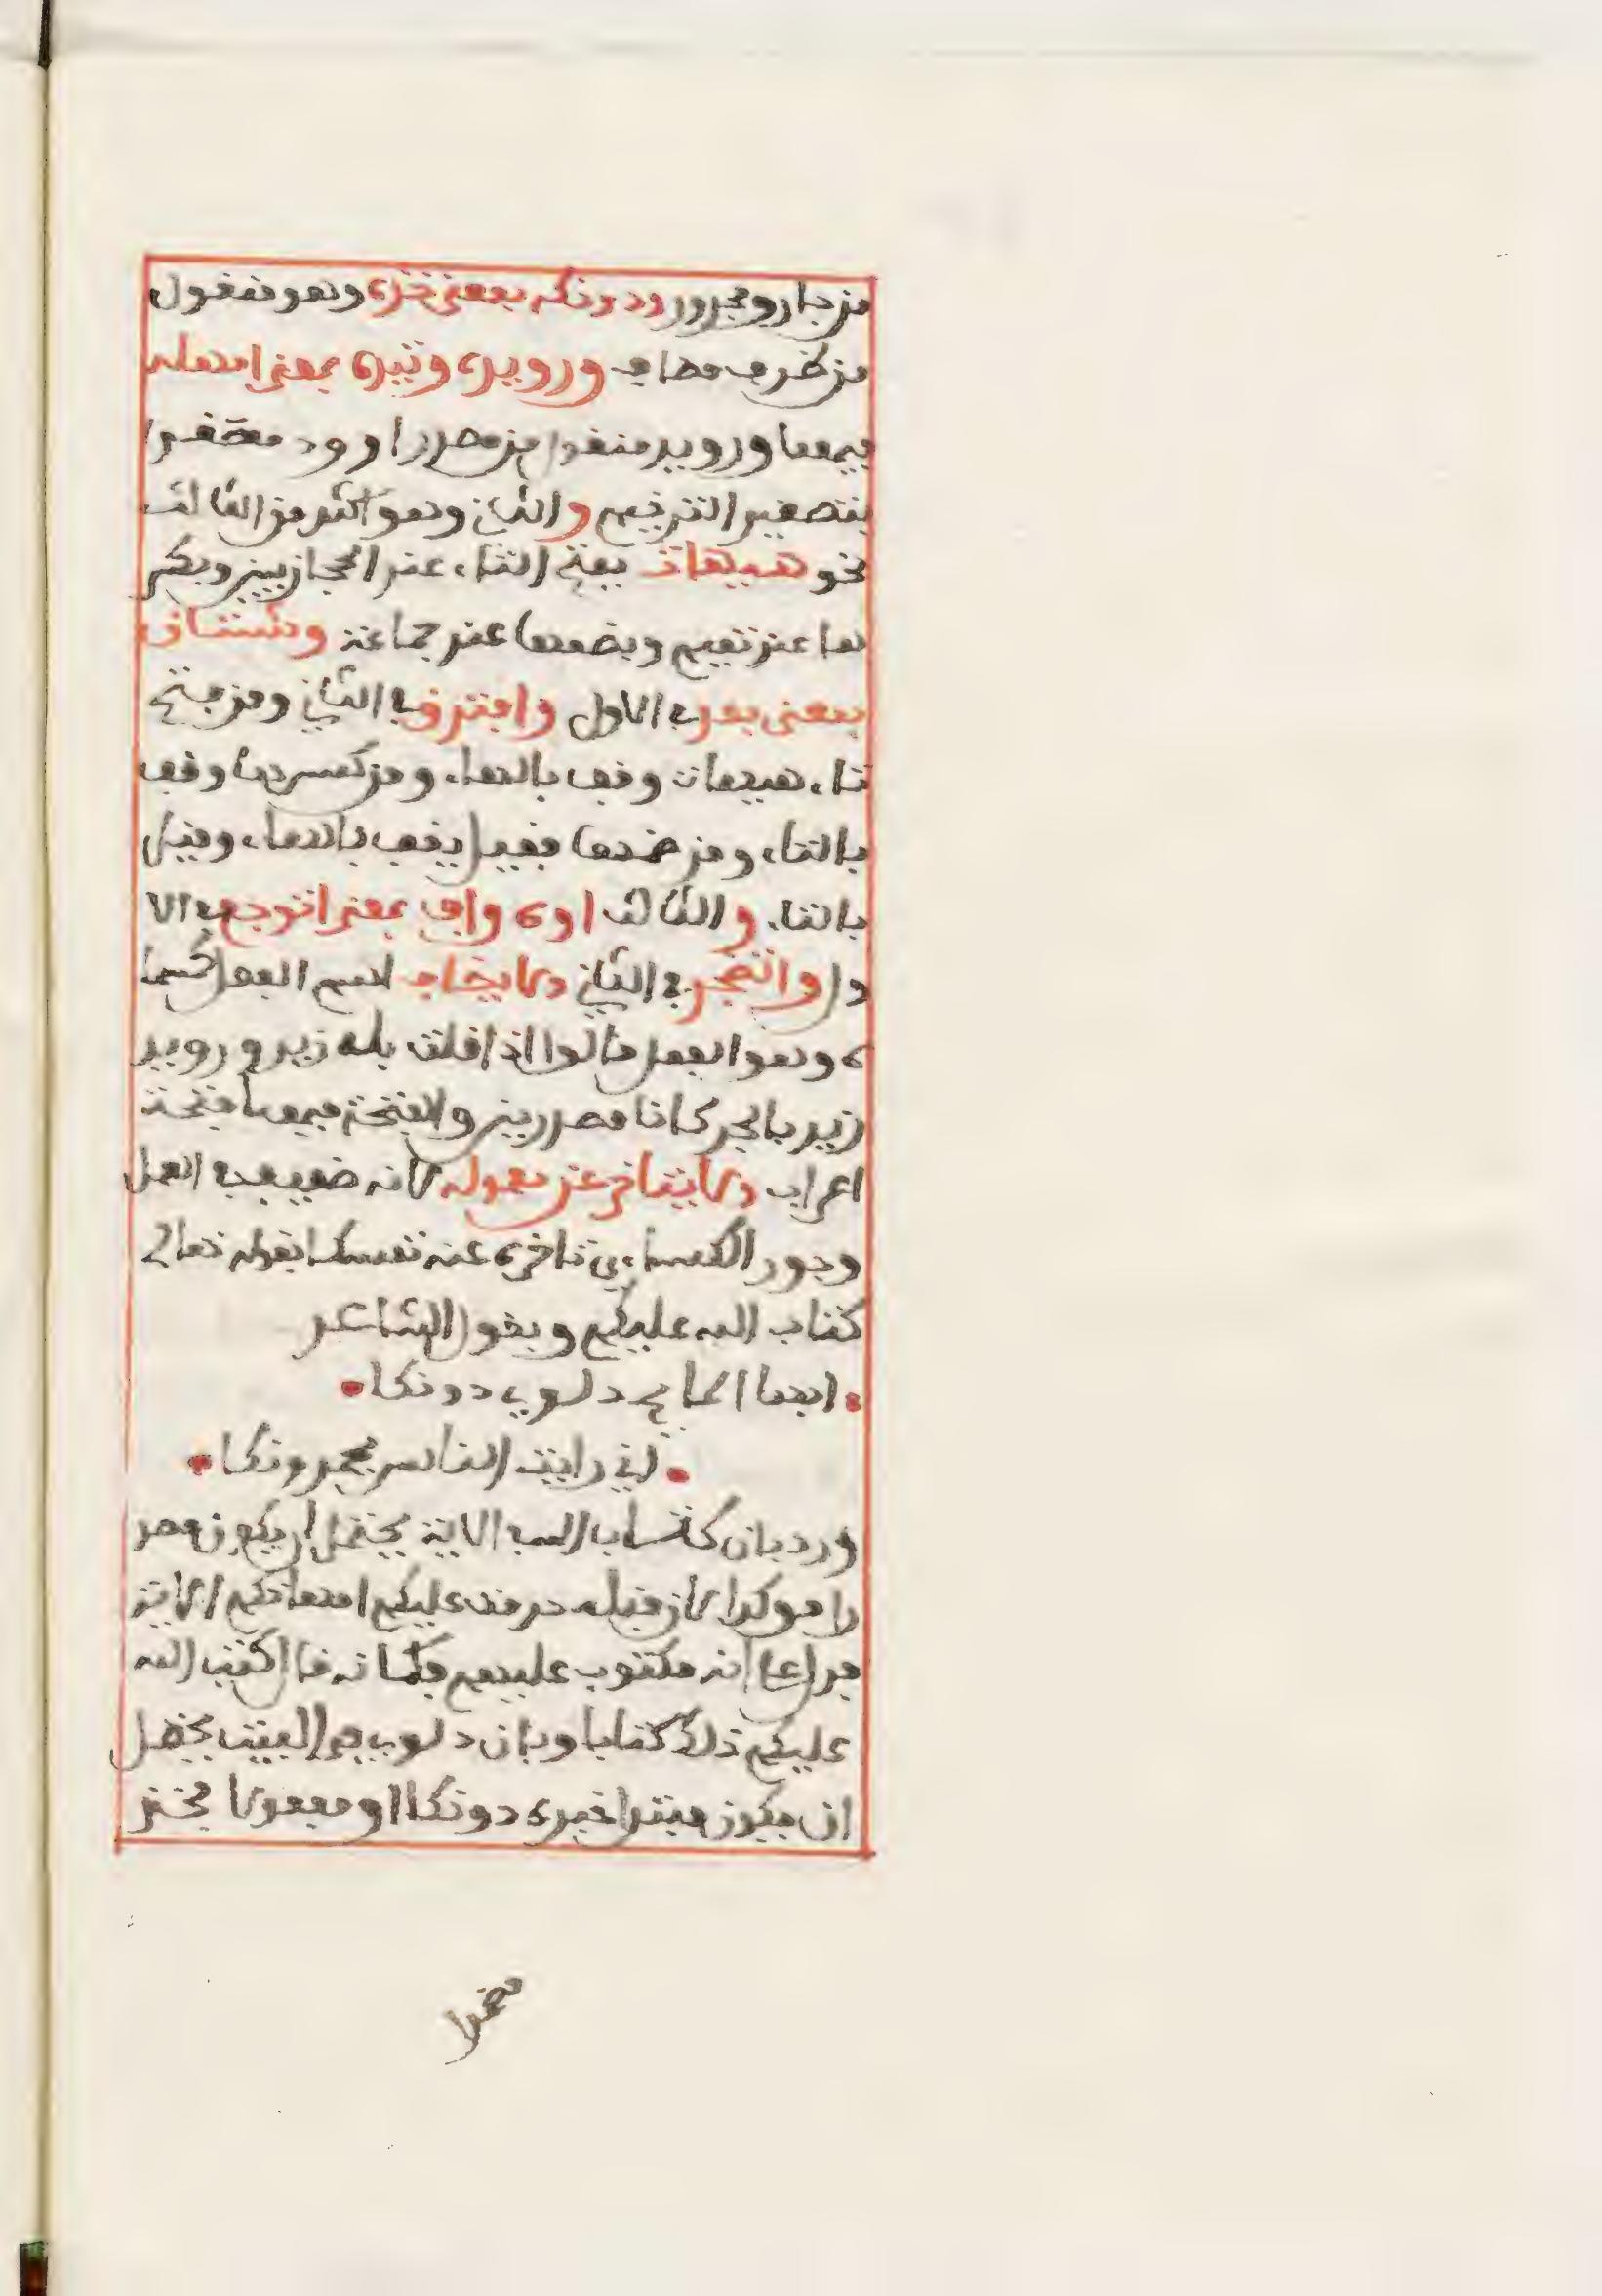 من جار ومجرور ودونكه بمعنى خذه وهو منقول
من ظرف مضاف ورويده وتيده بمعنى امهله
فيهما ورويد منقول من مصدر ارود مصغرا
بتصغير الترخيم والثاني وهو اكثر من الثالث
نحو هيهات بفتح التاء عند الحجازيين وبكسر
ها عند تميم وبضمها عند جماعة وشتان
بمعنى بعد في الاول وافترق في الثاني ومن فتح
تاء هيهات وقف بالهاء ومن كسرها وقف
بالتاء ومن ضمها فقيل يقف بالهاء وقيل
بالتاء والثالث اوه واف بمعنى اتوجع في الا
ول واتضجر في الثاني ولا يضاف اسم الفعل كمسما
ه وهو الفعل قالوا اذا قلت بله زيد ورويد
زيد بالجر كانا مصدرين والفتحة فيهما فتحة
اعراب ولا يتاخر عن معموله لانه ضعيف العمل
وجوز الكساءي تاخره عنه تمسكا بقوله تعالى
كتاب الله عليكم وبقول الشاعر
ايها المايح دلوي دونكا
اني رايت الناس يحمدونكا
ورد بان كتاب الله الاية يحتمل ان يكون مصد
را موكدا لان قبله حرمت عليكم امهاتكم الاية
فدل على انه مكتوب عليهم فكانه قال كتب الله
عليكم ذلك كتابا وبان دلوي في البيت يحتمل
ان يكون مبتدا خبره دونكا او مفعولا محذ